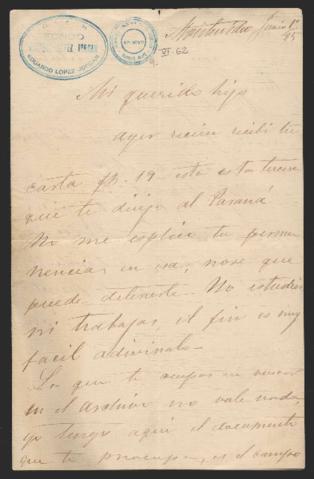 FONDO
EDUARDO LOPEZ JORDAN
VI. 62
Montevideo Junio 1º
95
Mi querido hijo
ayer recien recibi tu
carta fh. 19 esta es la tercera
que te dirijo al Paraná
No me esplico tu perma
nencia en esa, no se que
puede detenerte. No estudias
ni trabajas, el fin es muy
facil adivinalo.
Lo que te ocupas en
en el Archivo no vale nada,
yo tengo aquí el documento
que te preocupa, es el campo